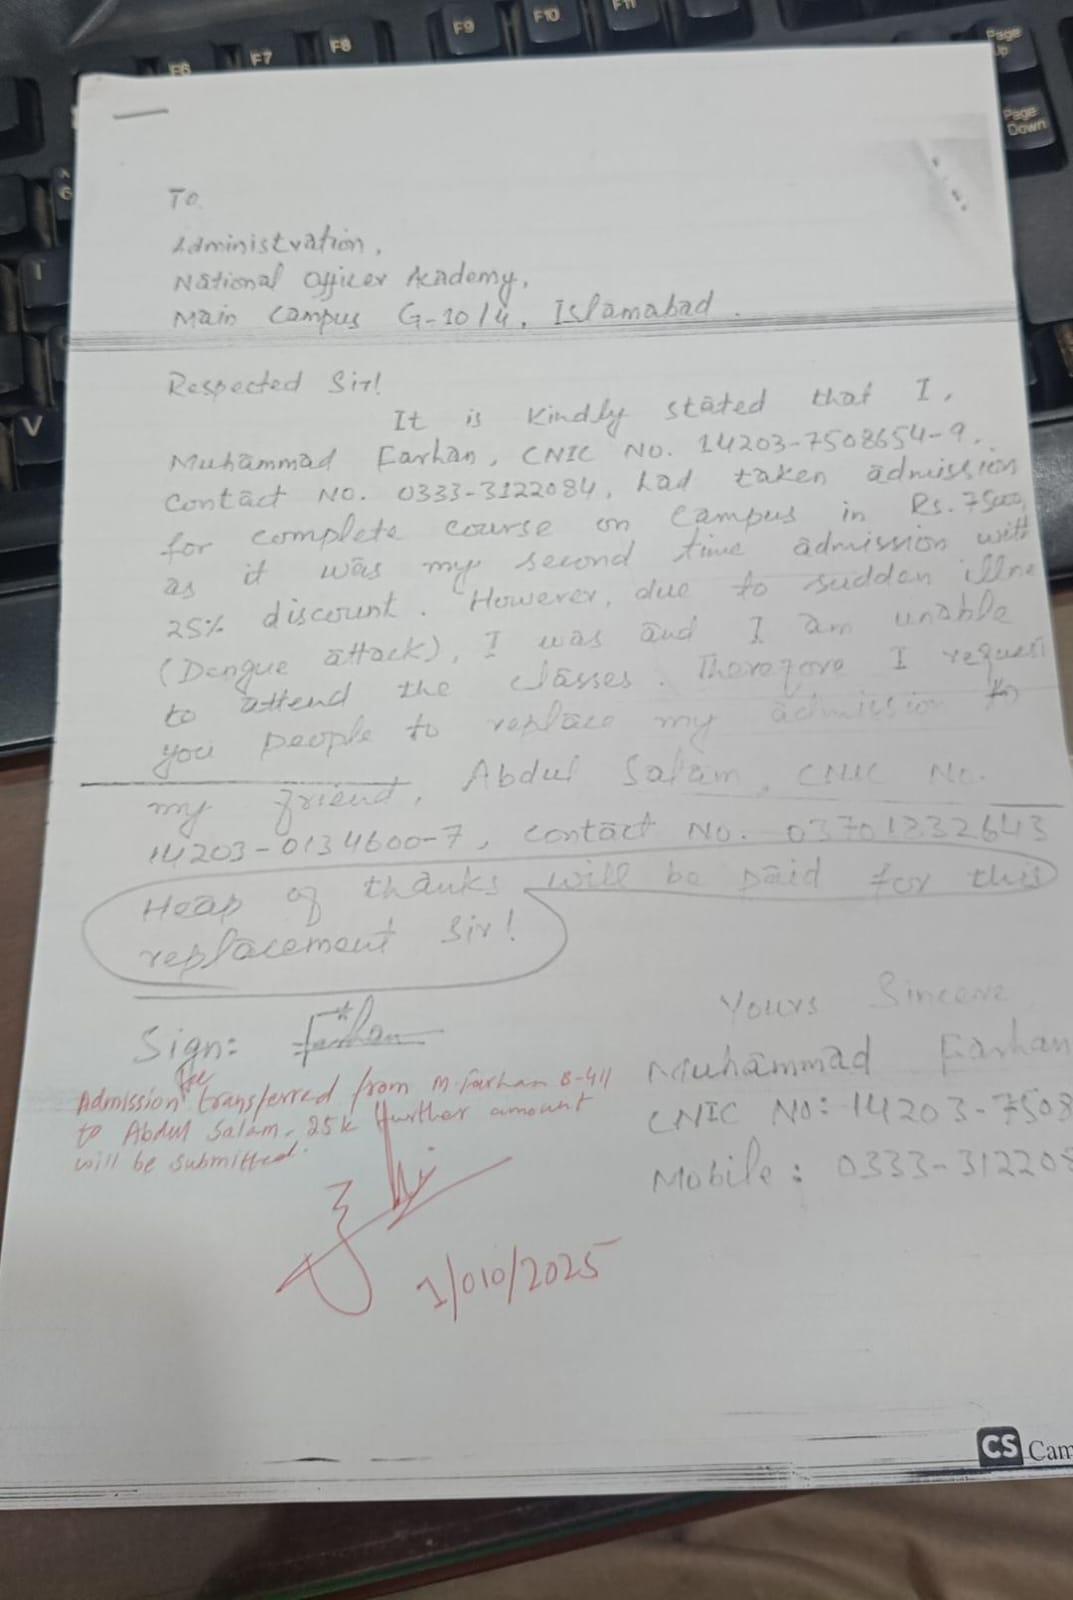 F6 F7 F8 F9 F10 F11
Page Up
Page Down
V
To
Administration,
National Officer Academy,
Main Campus G-10/4, Islamabad.
Respected Sir!
It is kindly stated that I,
Muhammad Farhan, CNIC No. 14203-7508654-9,
Contact No. 0333-3122084, had taken admission
for complete course on campus in Rs. 75000
as it was my second time admission with
25% discount. However, due to sudden illne
(Dengue attack), I was and I am unable
to attend the classes. Therefore I request
you people to replace my admission to
my friend, Abdul Salam, CNIC No.
14203-0134600-7, contact No. 03701232643
Heap of thanks will be paid for this
replacement Sir!
Yours Sincere
Sign: Farhan
Muhammad Farhan
CNIC No: 14203-7508
Mobile: 0333-312208
Admission fee transferred from M. Farhan B-411
to Abdul Salam. 25k further amount
will be submitted.
1/010/2025
CS Cam